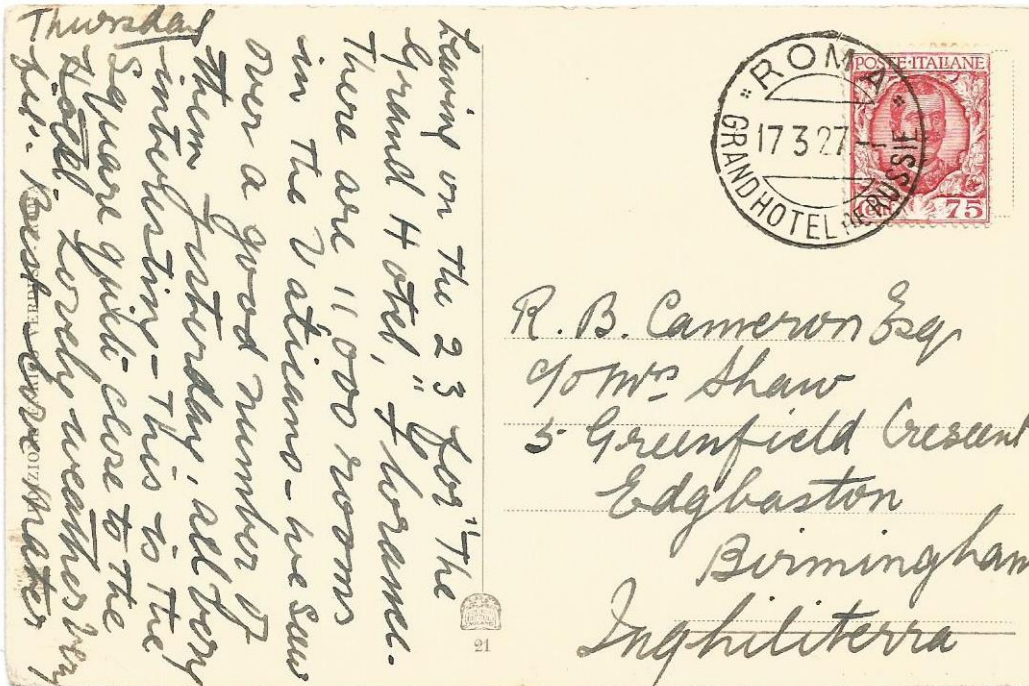 Thursday
Leaving on the 23 for "The
Grand Hotel," Florence.
There are 11,000 rooms
in the Vaticano - we saw
over a good number of
them yesterday, all very
interesting - This is the
Square quite close to the
Hotel Lovely weather very
Best Love Mater
ROMA
17 3 27
GRAND HOTEL DE RUSSIE
POSTE·ITALIANE
75
R. B. Cameron Esq
c/o Mrs Shaw
5 Greenfield Crescent
Edgbaston
Birmingham
Inghiliterra
21